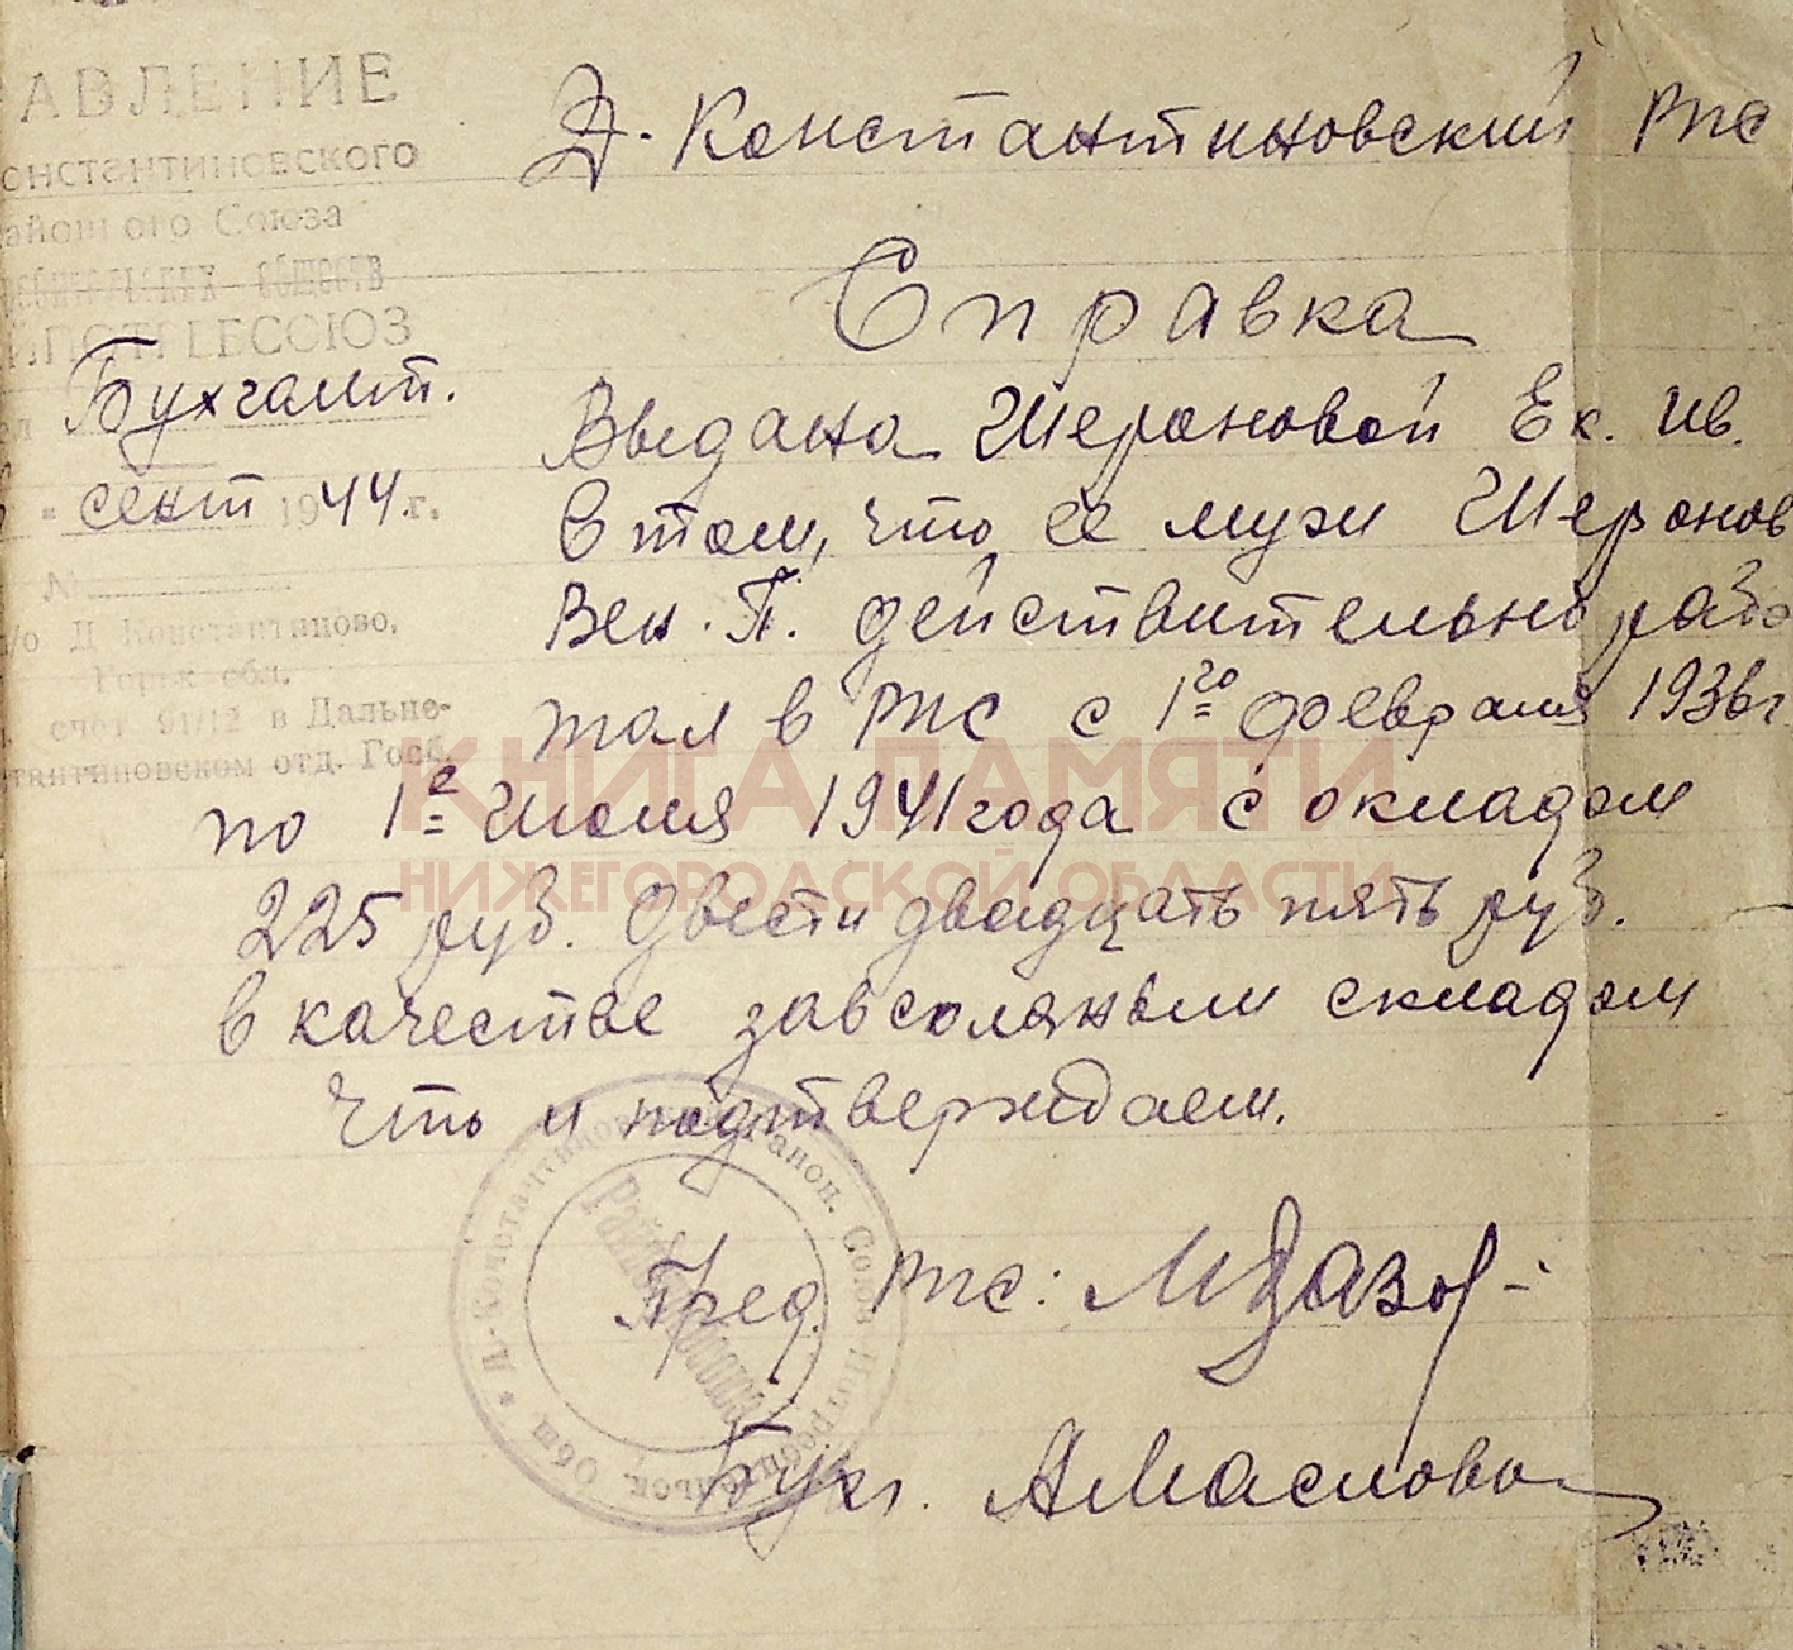 АВЛЕНИЕ
онстантиновского
айонного Союза
обществ
Бухгалт.
сент 1944.г.
№
п/о Д Константиново,
Горьк обл.
счет 91/12 в Дальне-
тантиновском отд. Госб.
Д. Константиновский РПС
Справка
Выдана Шероновой Ек. Ив.
в том, что ее муж Шеронов
Вен. П. действительно рабо
тал в РПС с 1го февраля 1936г
по 1е Июля 1941 года с окладом
225 руб. Двести двадцать пять руб.
в качестве завсоляным складом
Что и подтверждаем.
Пред. РПС:
Бухг. АМаслова
Д.-Константиновский Район. Союз Потребительск. Общ
Райпотребсоюз
КНИГА ПАМЯТИ
НИЖЕГОРОДСКОЙ ОБЛАСТИ